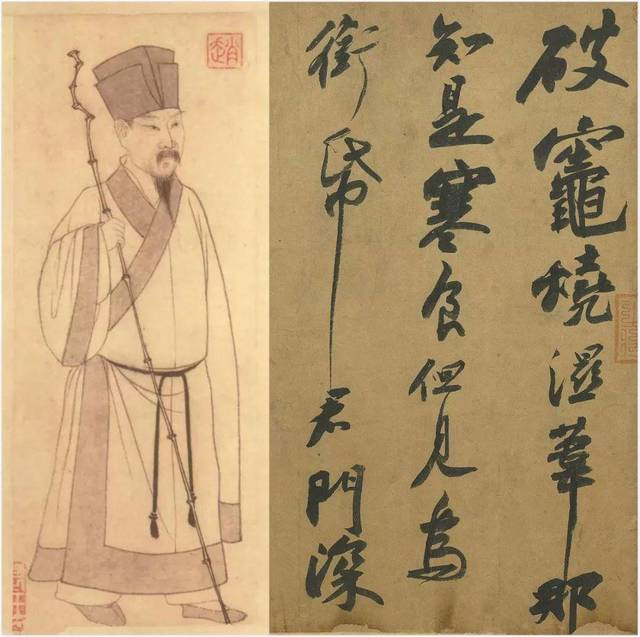 破竈燒濕葦那
知是寒食但見烏
銜帋君門深
趙